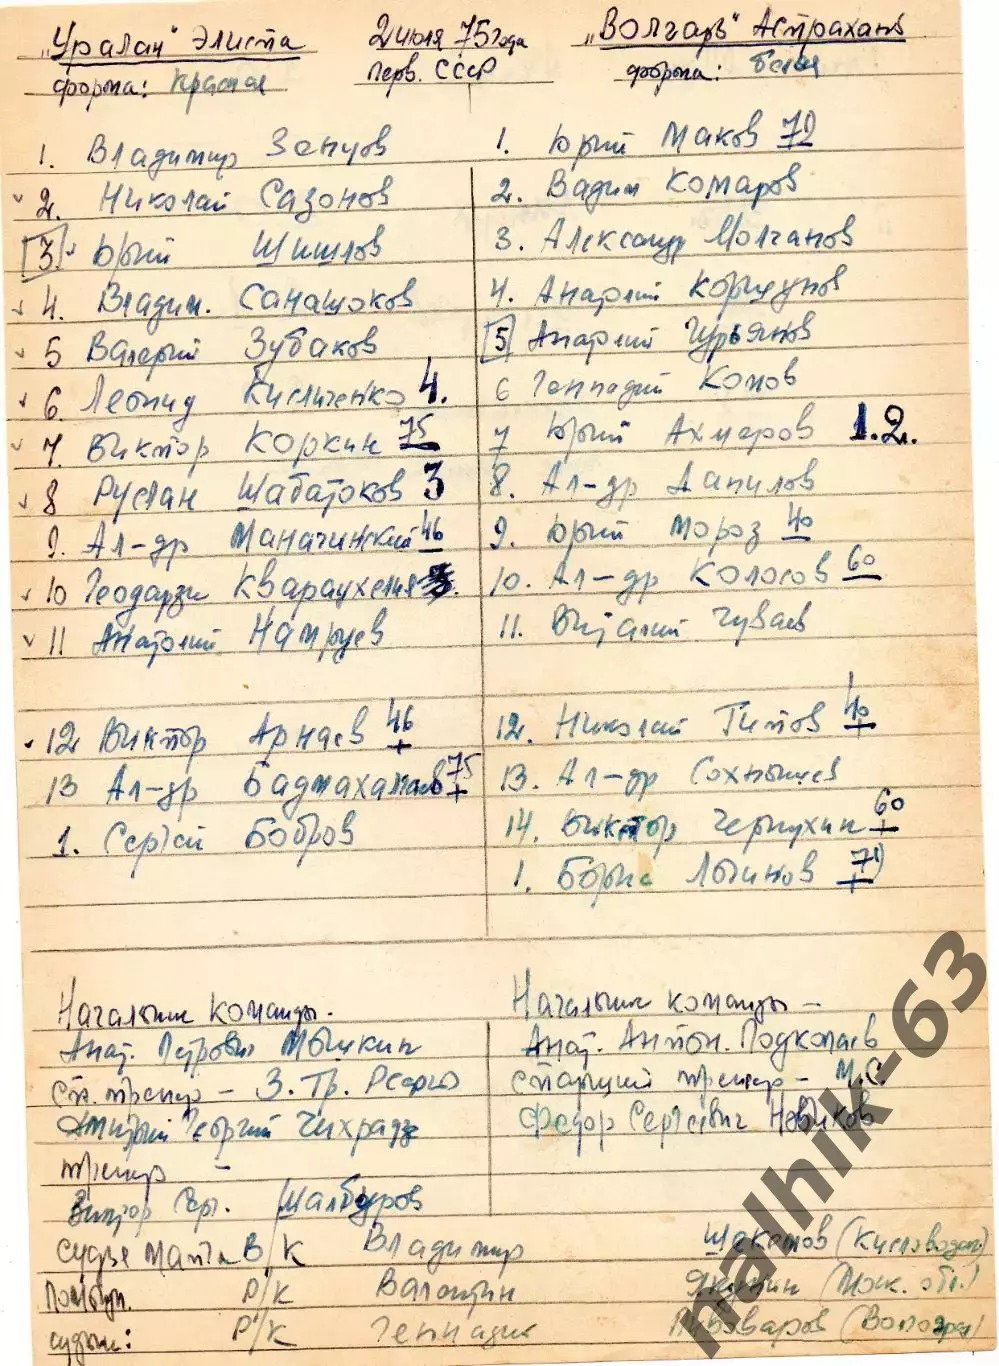 "Уралан" Элиста 2 июля 75 года "Волгарь" Астрахань
форма: Красная перв. СССР форма: белая
1. Владимир 1. Юрий Маков 72
2. Николай Сазонов 2. Вадим Комаров
3 Юрий Шишлов 3. Александр Молчанов
4. Владим. Санашоков 4. Анатолий Коршунов
5 Валерий Зубаков 5 Анатолий Гурьянов
6. Леонид Кисличенко 4. 6 Геннадий Комов
7. Виктор Коркин 75 7 Юрий Ахмеров 1.2.
8 Руслан Шабатоков 3 8. Ал-др Данилов
9. Ал-др Маначинский 46 9. Юрий Мороз 40
10 Теодарзи Квараухелия 10. Ал-др Колосов 60
11 Анатолий Намруев 11. Виталий Чуваев
12 Виктор Арнаев 46 + 12. Николай Титов 40 +
13 Ал-др 75 + 13. Ал-др Сохнышев
1. Сергей Бобров 14. Виктор Чернухин 60 +
1. Борис Логинов 72 +
Начальник команды. Начальник команды -
Анат. Петрович Мышкин Анат. Антон. Подколаев
Ст. тренер - З. Тр. РСФСР Старший тренер - М.С.
Дмитрий Георгий Чихрадзе Федор Сергеевич Новиков
тренер -
Виктор Сер. Шалбуров
Судья матча В/К Владимир Шекемов (Кисловодск)
Р/К Валентин Якунин (Моск. обл.)
судьи: Р/К Геннадий Пивоваров (Волгоград)
nalhik-63